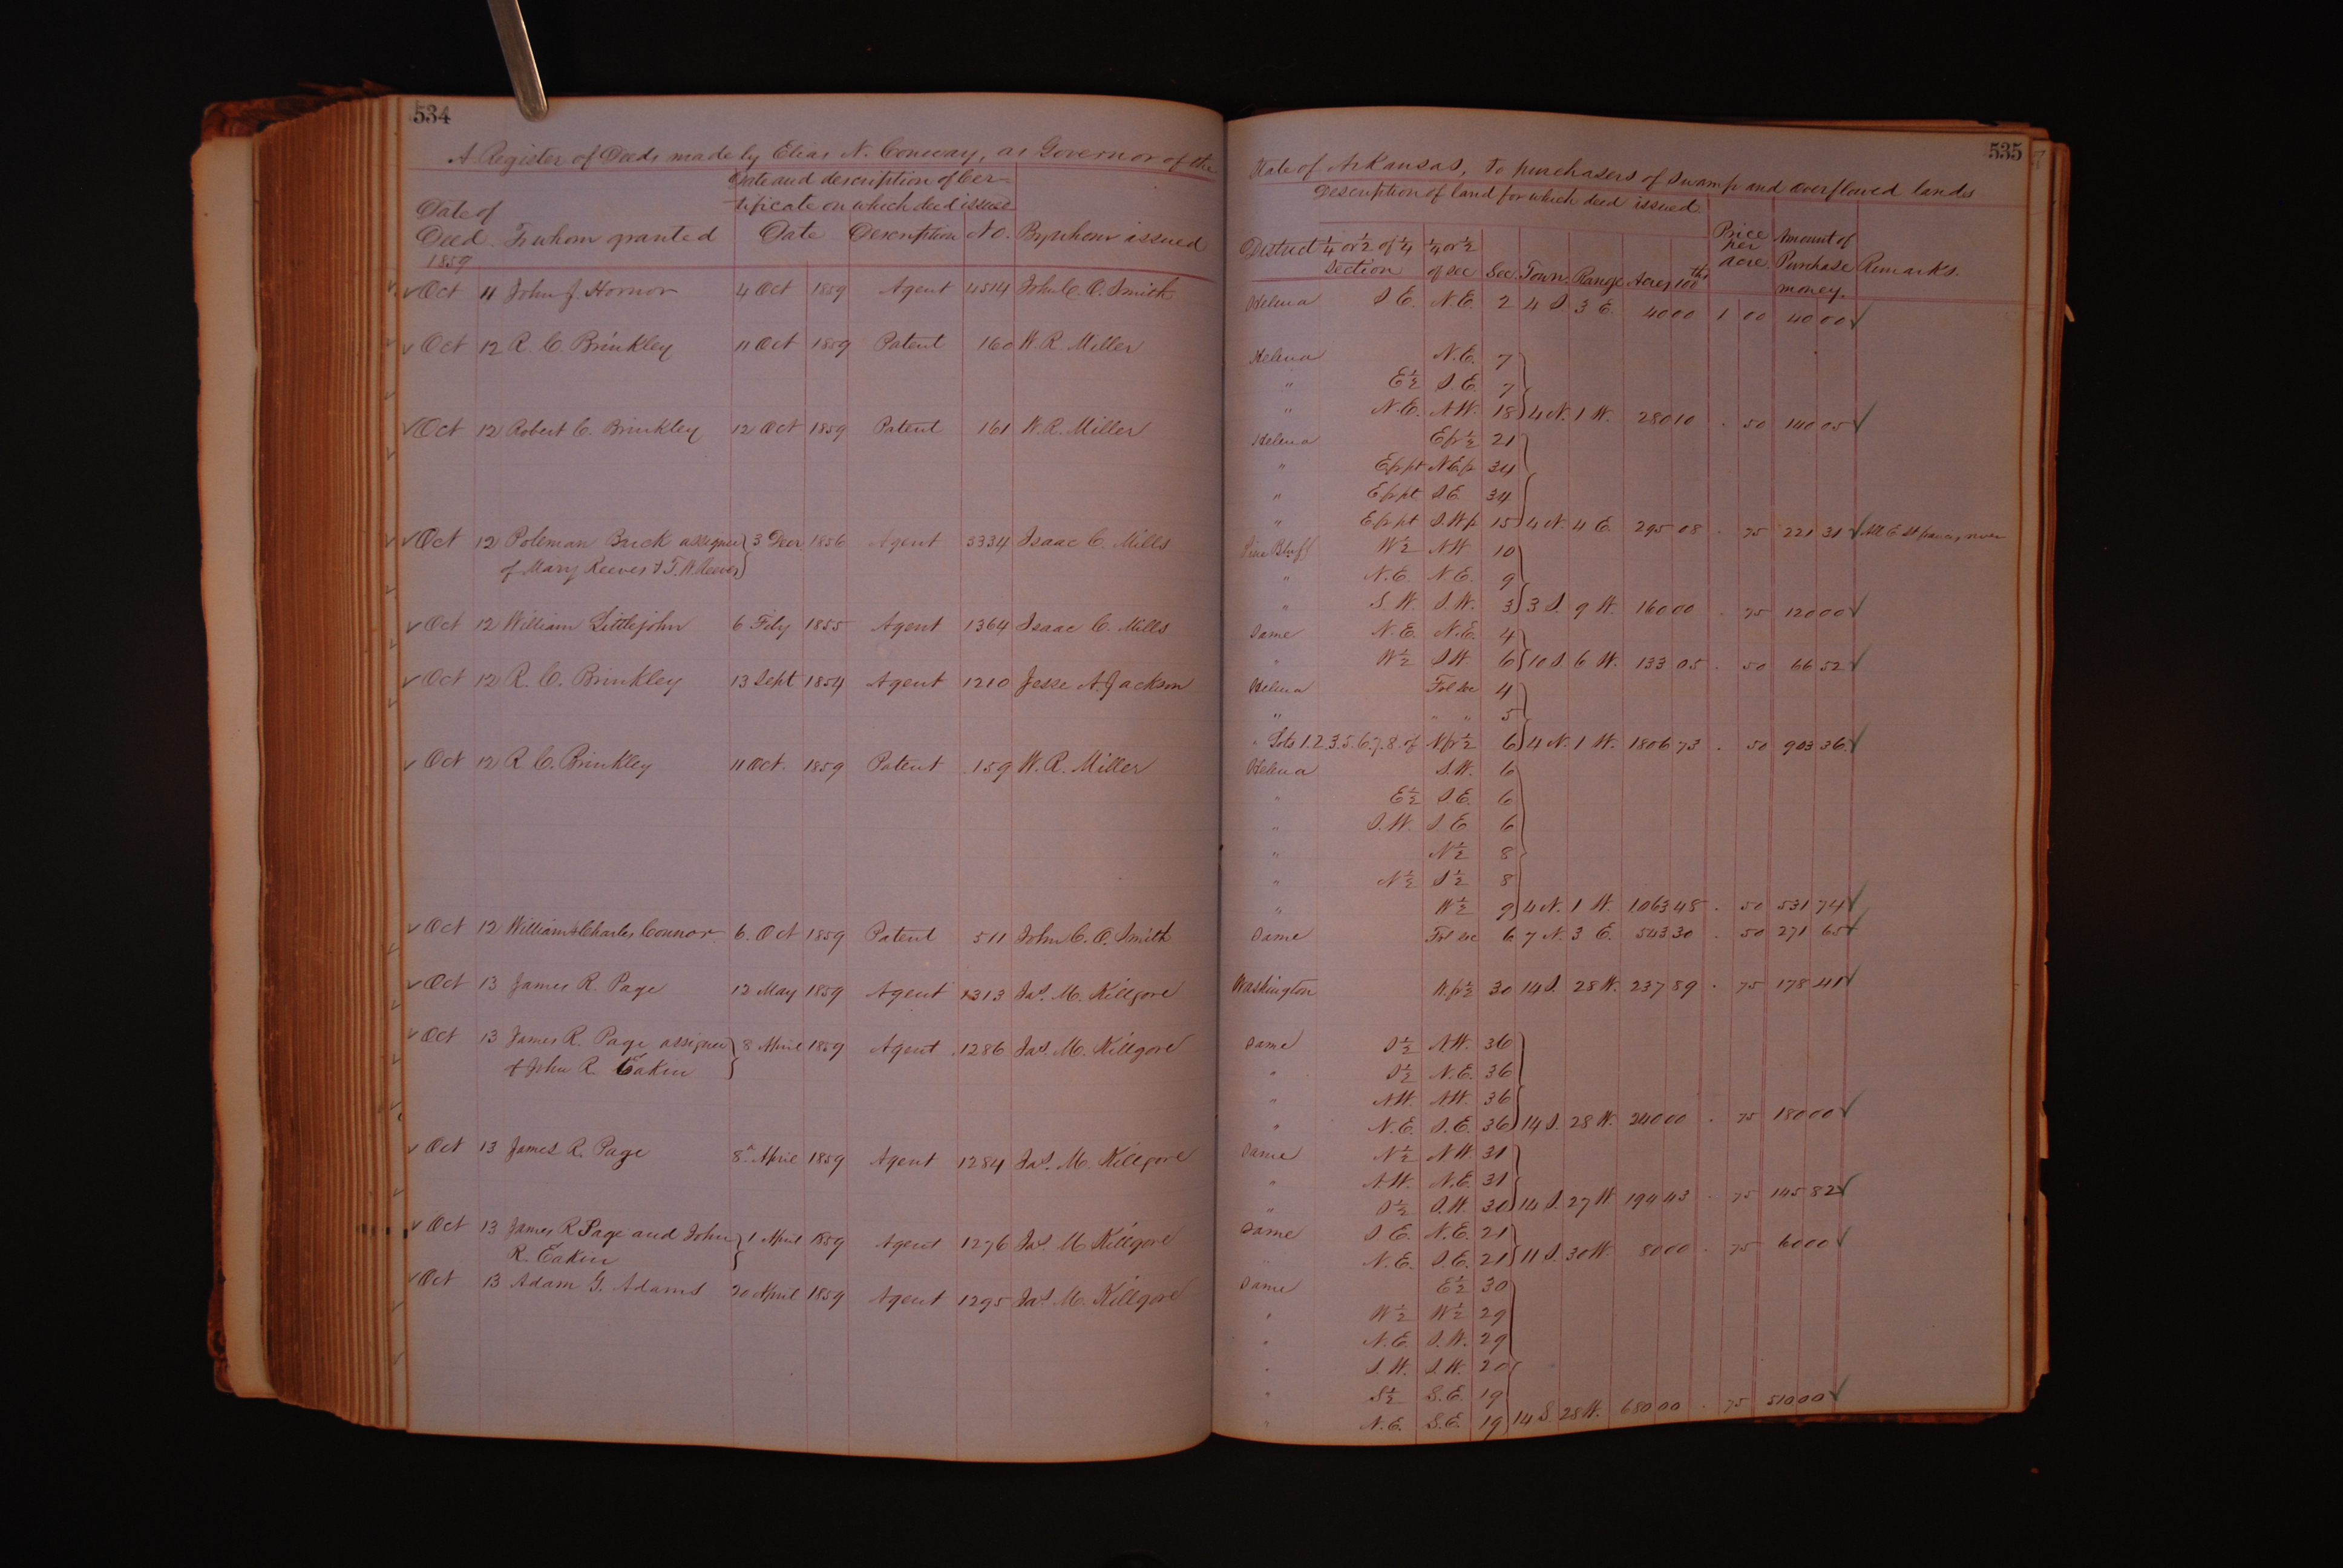 534
A Register of Deeds made by Elias N. Conway, as Governor of the
Date and description of Cer=
tificate on which deed issued
Date of
Deed. To whom granted Date Description No. By whom issued
1859
Oct 11 John J. Hornor 4 Oct 1859 Agent 4514 John C. O. Smith
Oct 12 R. C. Brinkley 11 Oct 1859 Patent 160 W. R. Miller
Oct 12 Robert C. Brinkley 12 Oct 1859 Patent 161 W. R. Miller
Oct 12 Poleman Buck assignee 3 Decr 1856 Agent 3334 Isaac C. Mills
of Mary Reeves & T. W. Reeves
Oct 12 William Littlejohn 6 Feby 1855 Agent 1364 Isaac C. Mills
Oct 12 R. C. Brinkley 13 Sept 1854 Agent 1210 Jesse A. Jackson
Oct 12 R. C. Brinkley 11 Oct. 1859 Patent 159 W. R. Miller
Oct 12 William & Charles Connor 6. Oct 1859 Patent 511 John C. O. Smith
Oct 13 James R. Page 12 May 1859 Agent 1313 Jas. M. Killgore
Oct 13 James R. Page assignee 8 April 1859 Agent 1286 Jas. M. Killgore
of John R. Eakin
Oct 13 James R. Page 8 April 1859 Agent 1284 Jas. M. Killgore
Oct 13 James R Page and John 1 April 1859 Agent 1276 Jas. M Killgore
R. Eakin
Oct 13 Adam G. Adams 20 April 1859 Agent 1295 Jas. M. Killgore
535
State of Arkansas, to purchasers of swamp and overflowed lands
Description of land for which deed issued
District 1/4 or 1/2 of 1/4 section 1/4 or 1/2 of sec Sec. Town Range Acres 100ths Price per acre. Amount of Purchase money. Remarks.
Helena S E. N.E. 2 4 S. 3 E. 40 00 1 00 40 00
Helena N.E. 7
" E 1/2 S.E. 7
" N.E. N.W. 18 4 N. 1 W. 280 10 . 50 140 05
Helena E fr 1/2 21
" E fr pt N.E. fr 34
" E fr pt S.E. 34
" E fr pt S.W fr 15 4 N. 4 E. 295 08 . 75 221 31 All E St francis river
Pine Bluff W 1/2 N W 10
" N.E. N.E. 9
" S. W. S.W. 3 3 S. 9 W. 160 00 . 75 120 00
Same N.E. N.E. 4
" W 1/2 S W 6 10 S 6 W. 133 05 . 50 66 52
Helena Frl sec 4
" " " 5
" Lots 1.2.3.5.6.7.8. of N fr 1/2 6 4 N. 1 W. 1806 73 . 50 903 36
Helena S.W. 6
" E 1/2 S.E. 6
" S.W. S.E 6
" N 1/2 8
" N 1/2 S 1/2 8
" W 1/2 9 4 N. 1 W. 1063 48 . 50 531 74
Same Frl sec 6 7 N. 3 E. 543 30 . 50 271 65
Washington N. fr 1/2 30 14 S. 28 W. 237 89 . 75 178 41
Same S 1/2 N.W. 36
" S 1/2 N.E. 36
" N.W. N.W. 36
" N.E. S.E. 36 14 S. 28 W. 240 00 . 75 180 00
Same N 1/2 N W. 31
" N.W. N.E. 31
" S 1/2 S.W. 30 14 S. 27 W 194 43 . 75 145 82
Same S E. N.E. 21
" N.E. S.E. 21 11 S. 30 W. 80 00 . 75 60 00
Same E 1/2 30
" W 1/2 W 1/2 29
" N.E S.W. 29
" S.W. S.W. 20
" S 1/2 S.E. 19
" N.E. S.E. 19 14 S. 28 W. 680 00 . 75 510 00